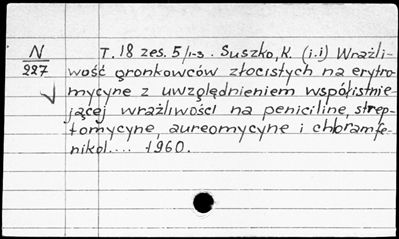 N T. 18 zes. 5/1-3. Suszko, K. (i.i) Wrażli-
227 wość gronkowców złocistych na erytro-
mycynę z uwzględnieniem współistnie-
jącej wrażliwości na penicilinę, strep-
tomycynę, aureomycynę i chloramfe-
nikol.... 1960.